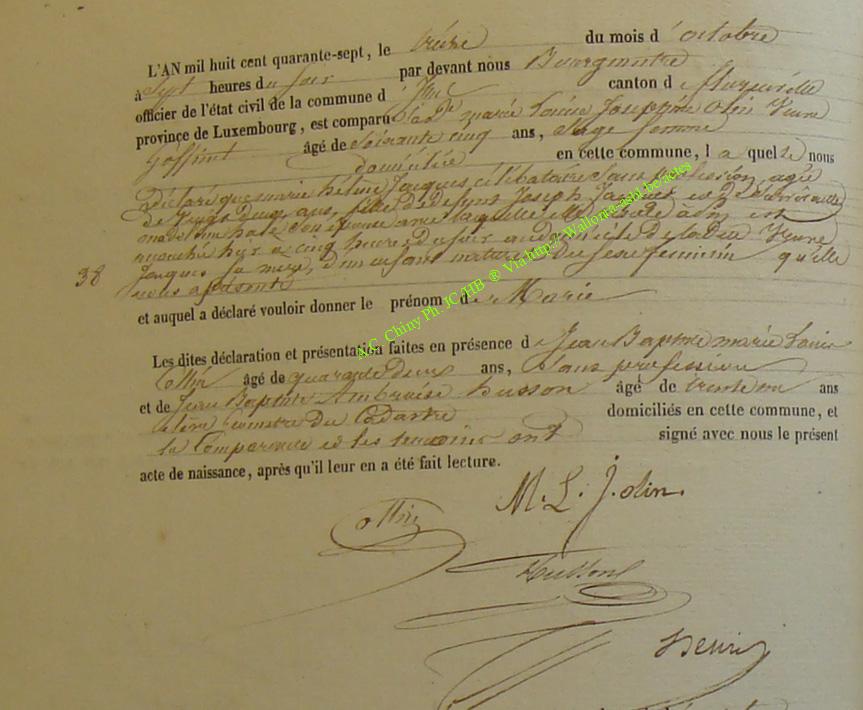 L'AN mil huit cent quarante-sept, le treize du mois d'octobre
à sept heures du soir par devant nous Bourgmestre
officier de l'état civil de la commune d canton de
province de Luxembourg, est comparu Marie Louise Josephine Olin Veuve
Goffinet âgé de soixante cinq ans, sage femme
domiciliée en cette commune, la quelle nous
Déclaré que marie hélène Jacques célibataire sans profession agée
de vingt deux ans, fille de défunt Joseph Jacques et de
avec laquelle elle
accouché hier à cinq heures du soir au domicile de la dite Veuve
Jacques sa mère, d'un enfant naturel du sexe feminin qu'elle
38
nous a présenté
et auquel a déclaré vouloir donner le prénom de Marie
Les dites déclaration et présentation faites en présence de Jean Baptiste marie Louis
âgé de quarante deux ans, sans profession
et de Jean Baptiste Ambroise husson âgé de trente un ans
du Cadastre domiciliés en cette commune, et
la Comparante et les temoins ont signé avec nous le présent
acte de naissance, après qu'il leur en a été fait lecture.
M. L. J. olin.
Husson
Henri
A.C. Chiny Ph. JC/HB ® Via http://Wallonia-asbl.be/actes